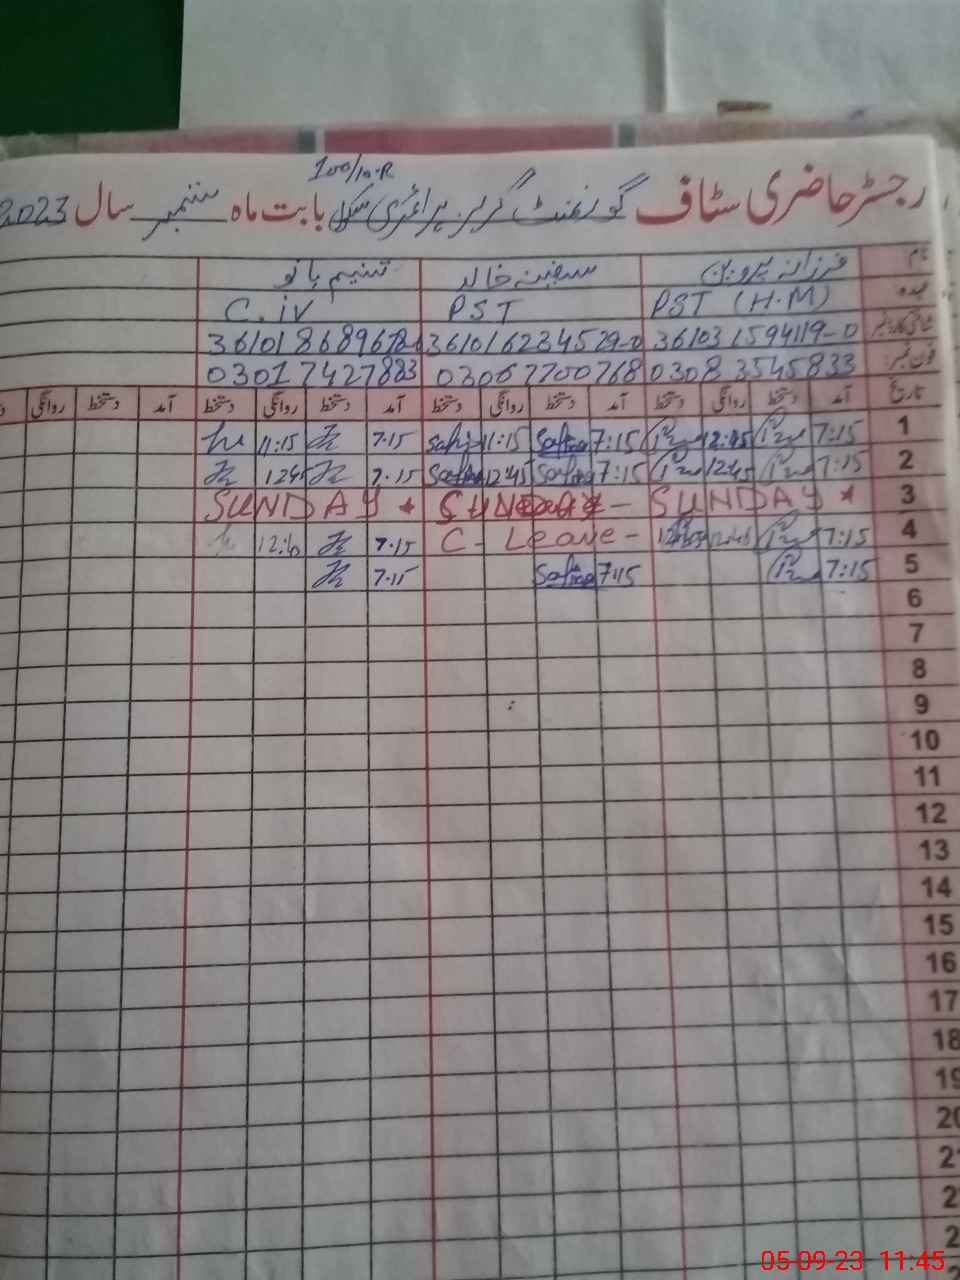 100/10-R
رجسٹر حاضری سٹاف گورنمنٹ گرلز پرائمری سکول بابت ماہ ستمبر سال 2023
نام فرزانہ پروین سفینہ خالد تسنیم بانو
عہدہ PST (H.M) PST C.iv
شناختی کارڈ نمبر 361031594119-0 361016234529-0
فون نمبر 03083545833 03067700768 03017427883
تاریخ آمد دستخط روانگی دستخط آمد دستخط روانگی دستخط آمد دستخط روانگی دستخط آمد دستخط روانگی
1 7:15 12:45 7:15 Safina 11:15 7.15 11:15
2 7:15 12:45 7:15 Safina 12:45 7.15 12:45
3 SUNDAY * SUNDAY - SUNDAY *
4 7:15 12:45 C - Leave - 7.15
5 7:15 7:15 Safina 7.15
6
7
8
9
10
11
12
13
14
15
16
17
18
19
20
05-09-23 11:45